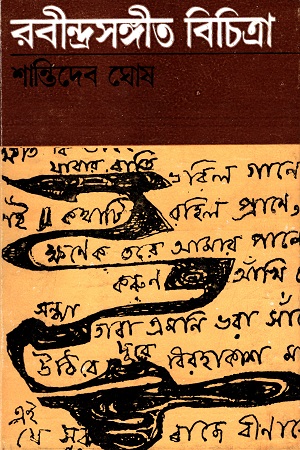 রবীন্দ্রসঙ্গীত বিচিত্রা
শান্তিদেব ঘোষ
যাবার রাতি
ভরিল গানে
এই কথাটি রহিল প্রাণে
ক্ষণেক তরে আমার পানে
করুণ আঁখি
সন্ধ্যা
তারা এমনি ভরা সাঁ
উঠিবে দূরে বিরহাকাশ মা
এই
যে সুর বাজে বীণা